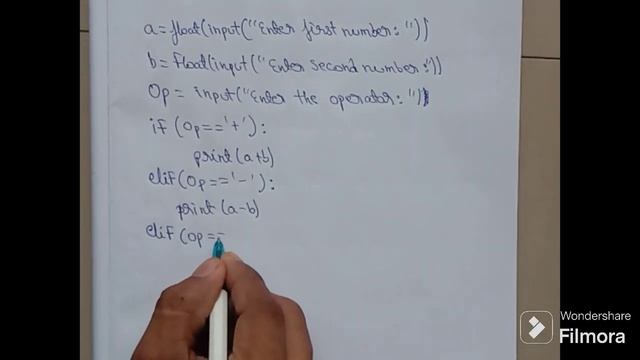 a=float(input("Enter first number: "))
b=Float(input("Enter second number:"))
Op= input("Enter the operator: ")
if (Op=='+'):
print(a+b)
elif(Op=='-'):
print(a-b)
elif (Op==
Wondershare
Filmora